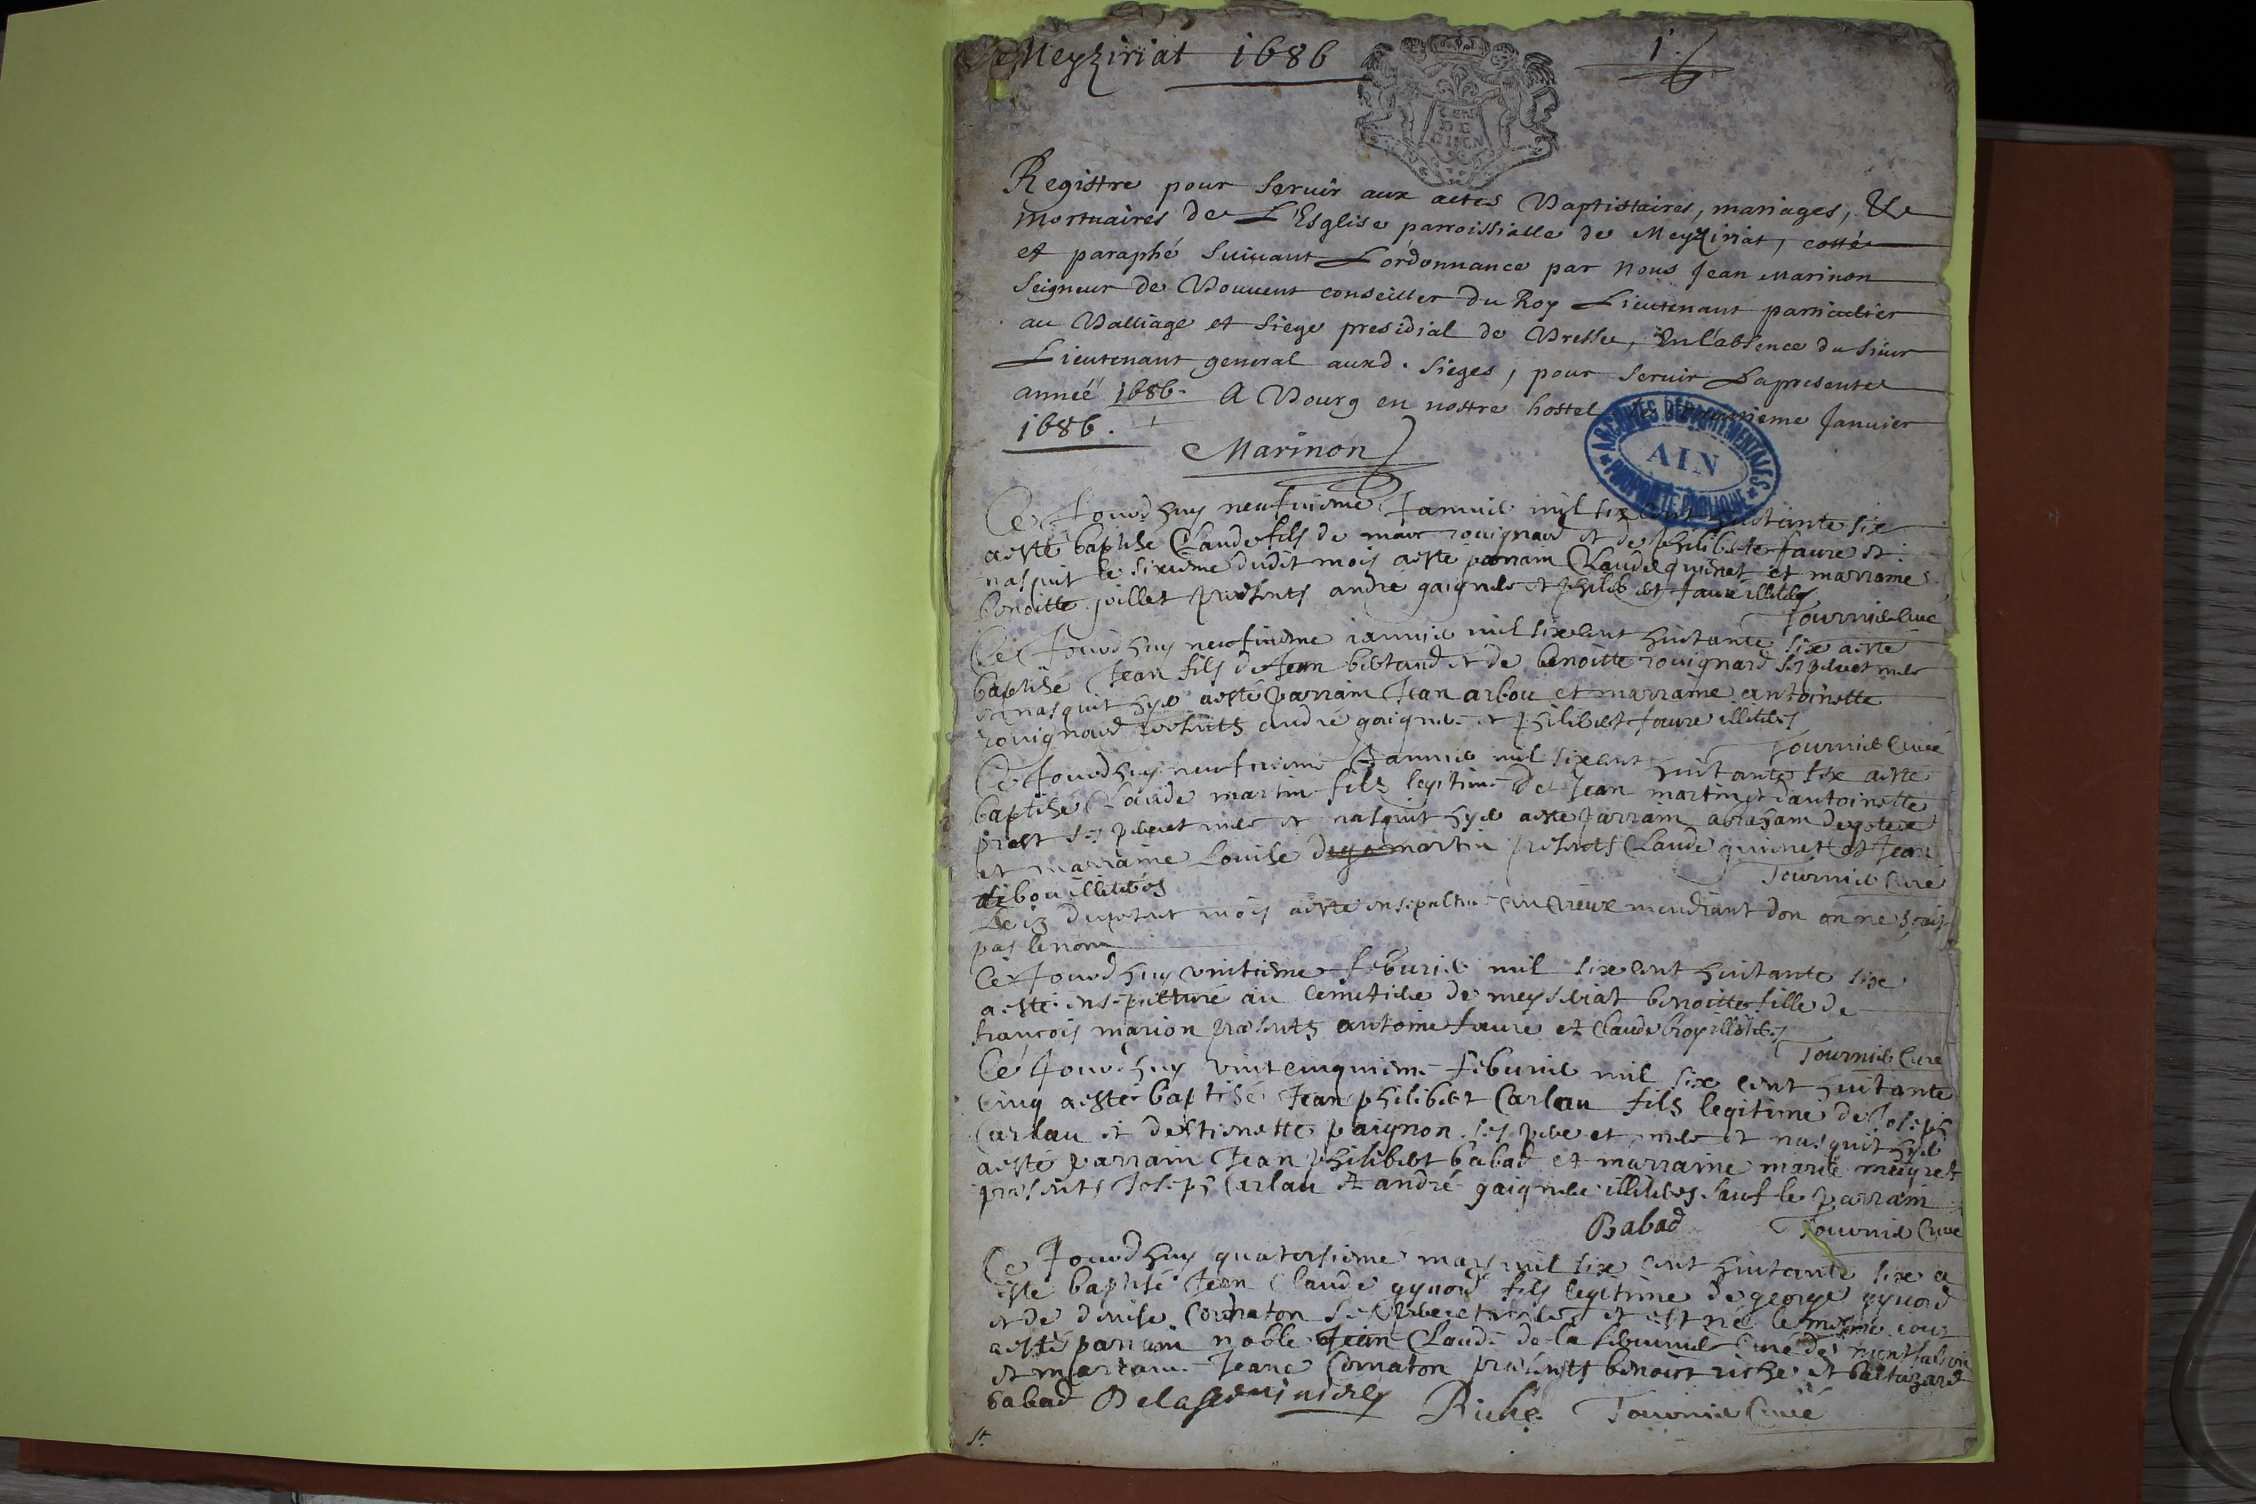 Meyziriat 1686
1.
GEN
DE
DIION
Registre pour seruir aux actes Baptistaires, mariages, &
mortuaires de L'Esglise parroissialle de Meyziriat, cotté
et paraphé suiuant L'ordonnance par Nous Jean Marinon
seigneur de Bouuent conseiller du Roy Lieutenant particulier
au Balliage et siege presidial de Bresse, En l'absence du sieur
Lieutenant general auxd. sieges, pour seruir La presente
année 1686. A Bourg en nostre hostel Janvier
1686.
Marinon
ARCHIVES DÉPARTEMENTALES
AIN
PROPRIÉTÉ PUBLIQUE
Ce Jourd huy neufuieme Januier mil six cent huitante six
a esté baptisé Claude fils de marc rouignard et de philiberte faure et
nasquit le sixieme dudit mois a esté parrain Claude guinet et marraine
benoitte juillet presents andre gaigniere et philibert faure illiteres
Tournier Curé
Ce Jourd huy neufuieme ianuier mil six cent huitante six a esté
baptisé Jean fils de Jean bertand et de benoitte rouignard ses pere et mere
et nasquit hyer a esté parrain Jean arbou et marraine antoinette
rouignard presents andré gaigniere et philibert faure illiteres
Tournier Curé
Ce Jourd huy neufuieme Januier mil six cent huitante six a esté
baptisé Claude martin fils legitime de Jean martin et d'antoinette
prost ses pere et mere et nasquit hyer a esté parrain abraham
et marraine Louise martin presents Claude guinet et Jean
arbou illiteres
Tournier Curé
Le 13 du present mois a esté ensepulturé un vieux mendiant don on ne sçait
pas le nom
Ce Jourd huy vintieme feburier mil six cent huitante six
a esté ensepulturé au cemetiere de meysiriat benoitte fille de
françois marion presents antoine faure et Claude illiteres
Tournier Curé
Ce Jourd huy vint cinquieme feburier mil six cent huitante
cinq a esté baptisé Jean philibert Carlau fils legitime de Joseph
Carlau et d'estienette paignon ses pere et mere et nasquit hyer
a esté parrain Jean philibert babad et marraine marie meigret
presents Joseph Carlau et andré gaigniere illiteres sauf le parrain
Babad Tournier Curé
Ce Jourd huy quatorsieme mars mil six cent huitante six a
esté baptisé Jean Claude gynod fils legitime de george gynod
et de denise Cornaton ses pere et mere et est né le mesme iour
a esté parrain noble Jean Claude de la Curé de montfalcon
et marraine Jeane Cornaton presents benoist riche et baltazard
babad Riche Tournier Curé